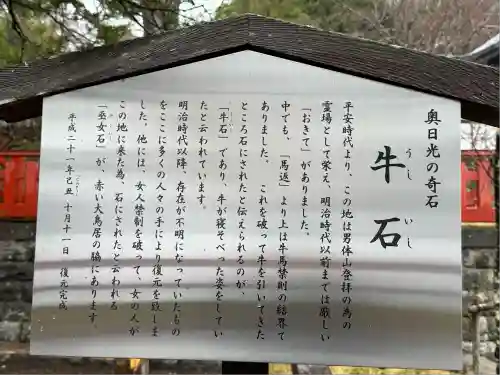 奥日光の奇石
牛石
うし いし
平安時代より、この地は男体山登拝の為の
霊場として栄え、明治時代以前までは厳しい
「おきて」がありました。
中でも、「馬返」より上は牛馬禁制の結界で
ありました。これを破って牛を引いてきた
ところ石にされたと伝えられるのが、
「牛石」であり、牛が寝そべった姿をしてい
たと云われています。
明治時代以降、存在が不明になっていたもの
をここに多くの人々の手により復元を致しま
した。他には、女人禁制を破って、女の人が
この地に来た為、石にされたと云われる
「巫女石」が、赤い大鳥居の脇にあります。
平成二十一年己丑 十月十一日 復元完成